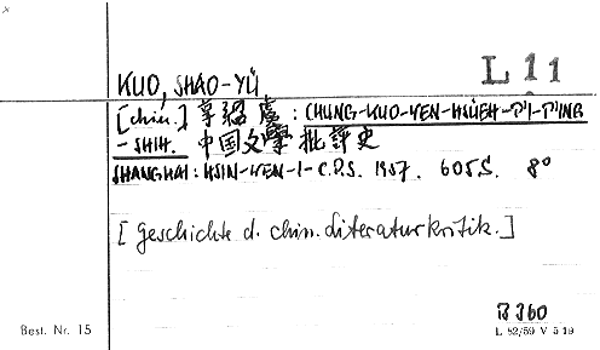 L 11
KUO, SHAO-YÜ
[chin.] 享紹虞 : CHUNG-KUO-WEN-HSÜEH-P'I-P'ING
-SHIH. 中国文學批評史
SHANGHAI: HSIN-WEN-I-C.P.S. 1957. 605 S. 8°
[Geschichte d. chin. Literaturkritik.]
B 360
Best. Nr. 15
L 52/59 V 5 19